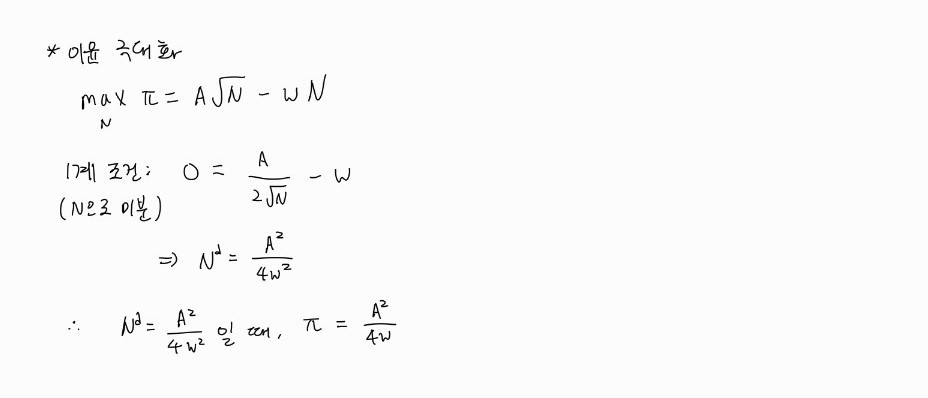 * 이윤 극대화
max π = A√N - wN
N
1계 조건: 0 = A/(2√N) - w
(N으로 미분)
⇒ N^d = A²/(4w²)
∴ N^d = A²/(4w²) 일 때, π = A²/(4w)